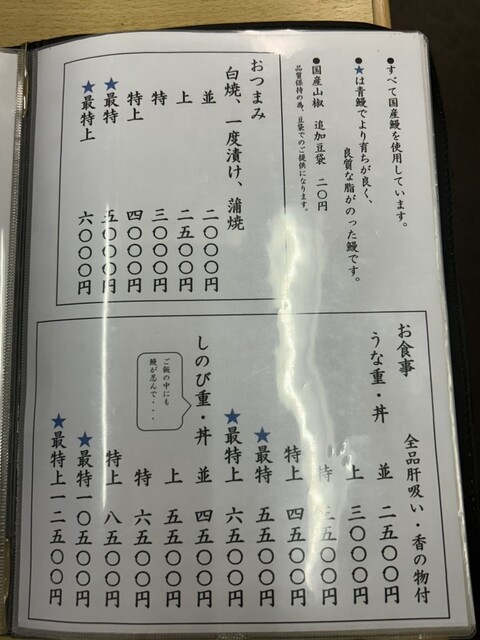 ●すべて国産鰻を使用しています。
●★は青鰻でより育ちが良く、
良質な脂がのった鰻です。
●国産山椒 追加豆袋 二〇円
品質保持の為、豆袋でのご提供になります。
おつまみ
白焼、一度漬け、蒲焼
並 二〇〇〇円
上 二五〇〇円
特 三〇〇〇円
特上 四〇〇〇円
★最特 五〇〇〇円
★最特上 六〇〇〇円
お食事 全品肝吸い・香の物付
うな重・丼
並 二五〇〇円
上 三〇〇〇円
特 三五〇〇円
特上 四五〇〇円
★最特 五五〇〇円
★最特上 六五〇〇円
しのび重・丼
ご飯の中にも
鰻が忍んで・・・・
並 四五〇〇円
上 五五〇〇円
特 六五〇〇円
特上 八五〇〇円
★最特 一〇五〇〇円
★最特上 一二五〇〇円